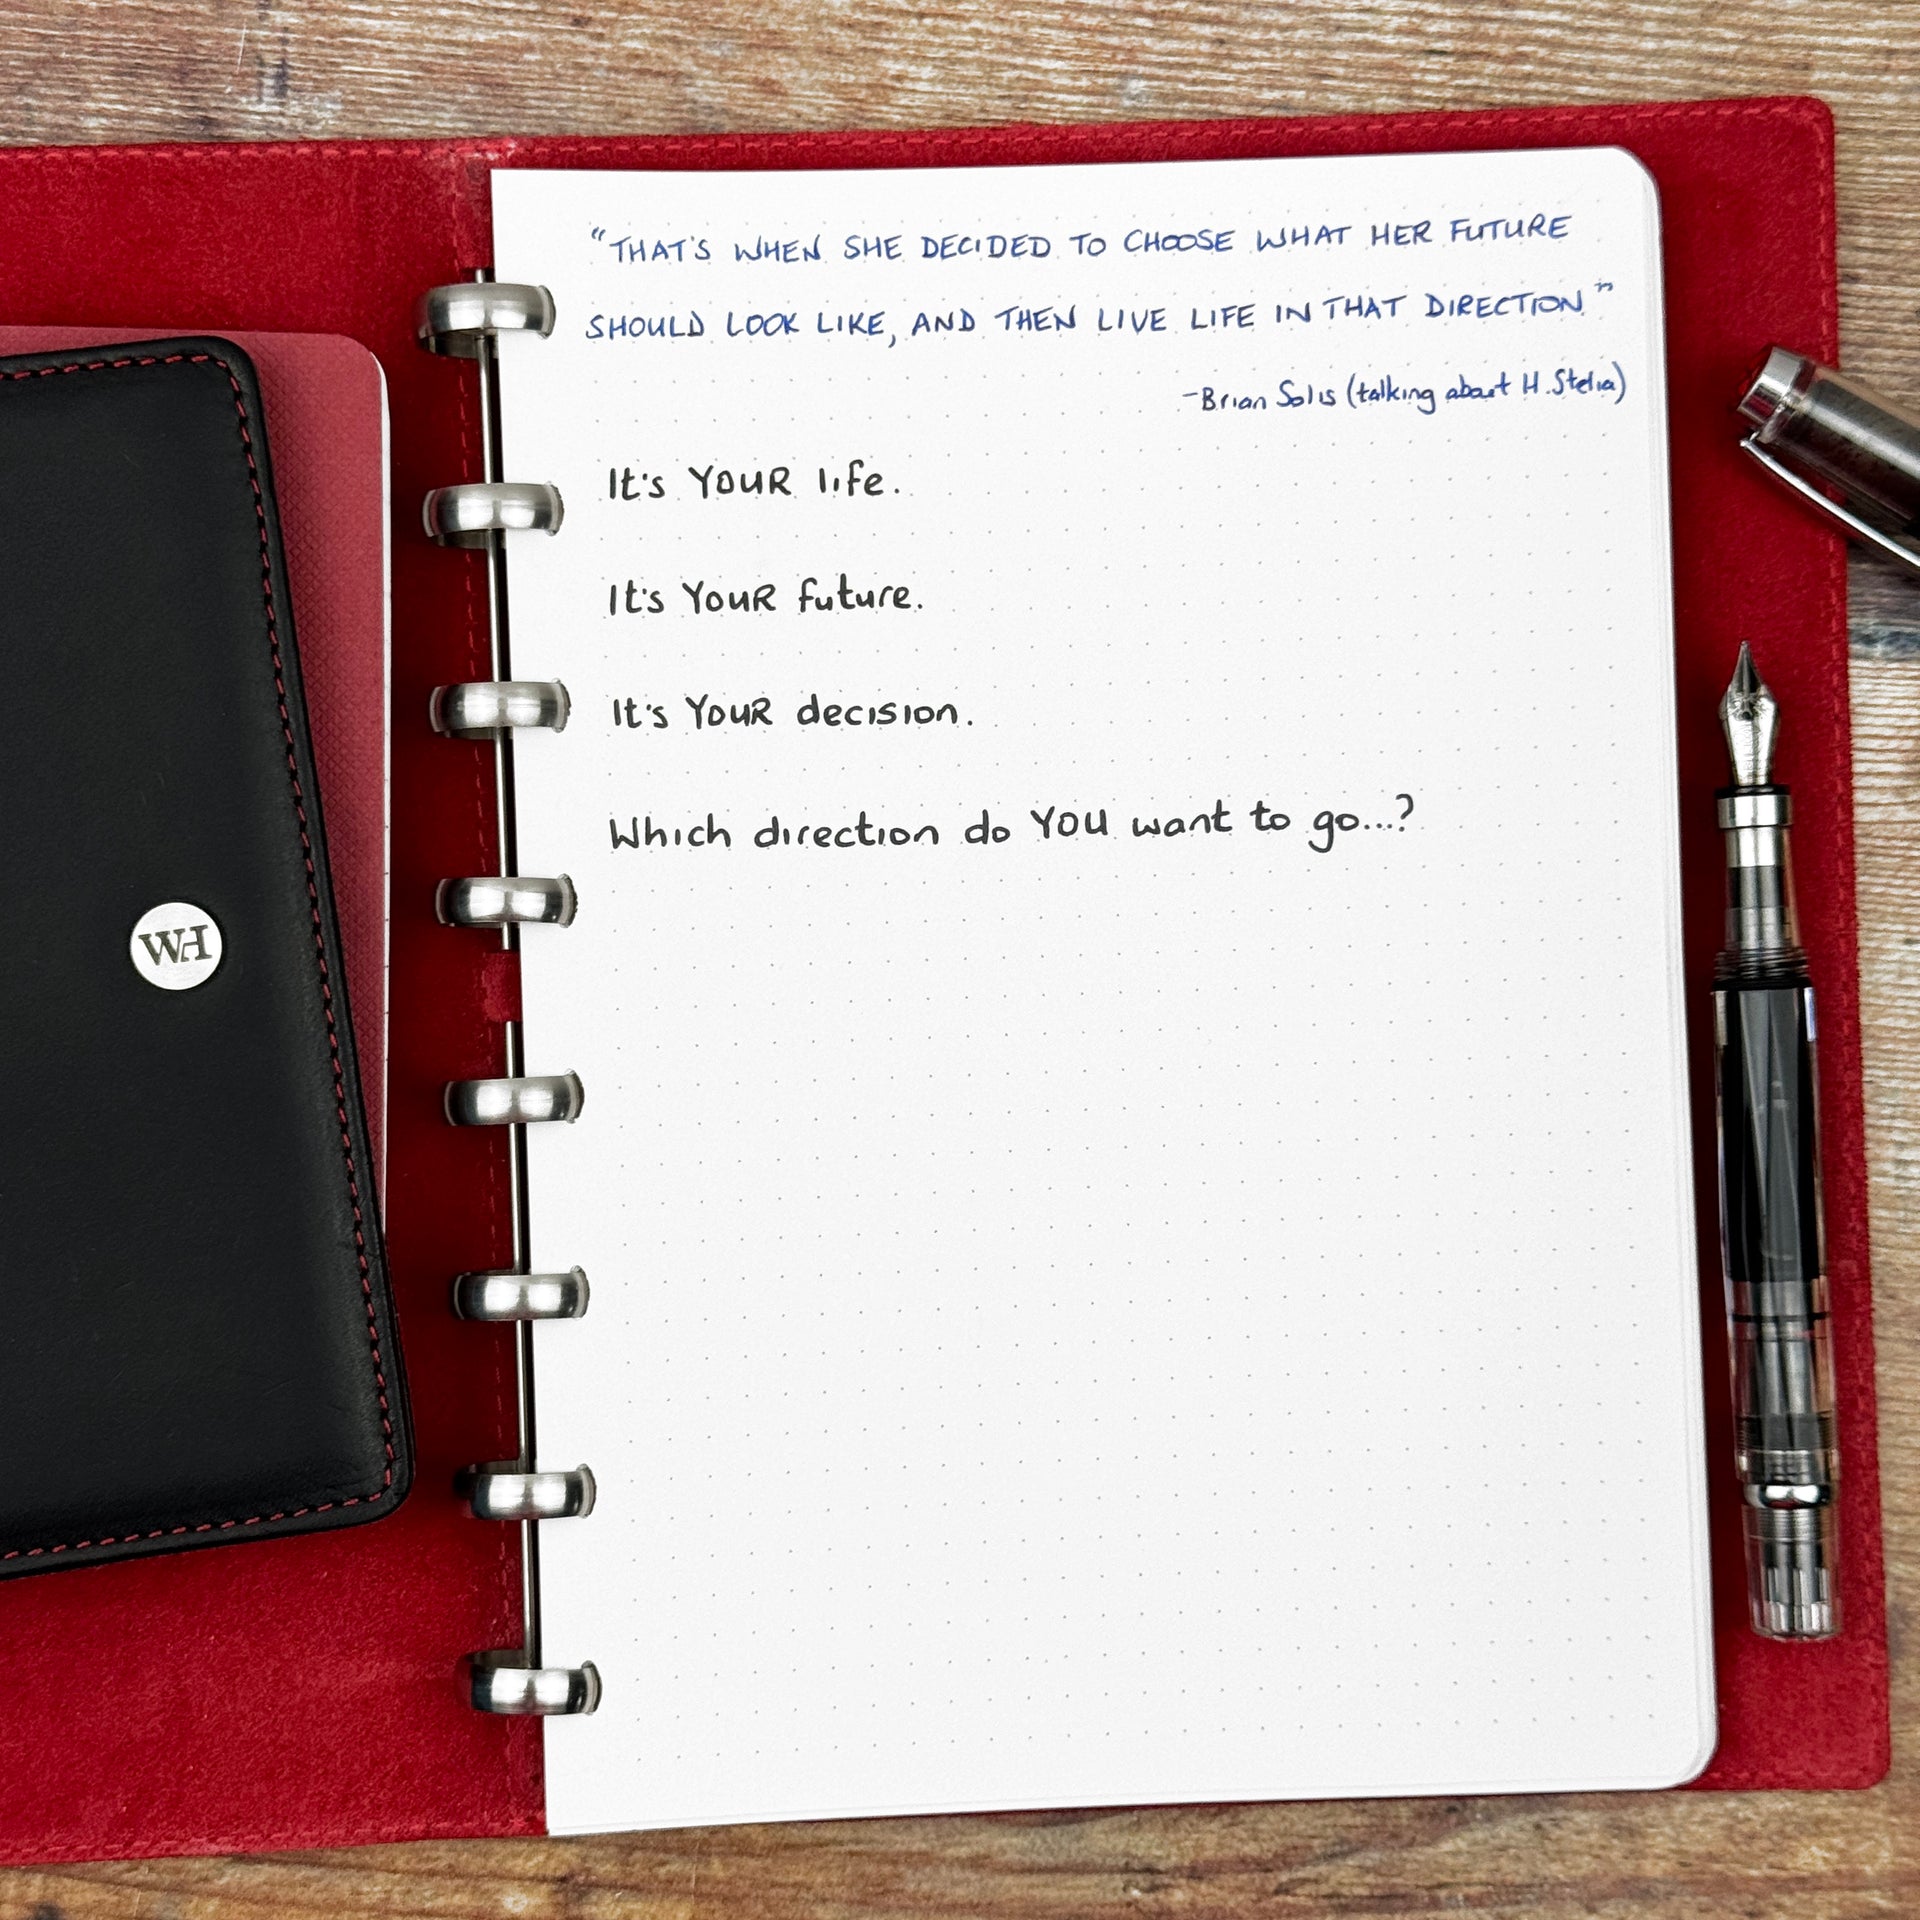 "THAT'S WHEN SHE DECIDED TO CHOOSE WHAT HER FUTURE
SHOULD LOOK LIKE, AND THEN LIVE LIFE IN THAT DIRECTION"
-Brian Solis (talking about H. Stelia)
It's YOUR life.
It's YOUR future.
It's YOUR decision.
Which direction do YOU want to go...?
WH